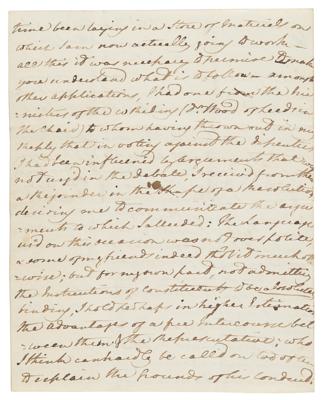 time been laying in a Store of Materials on
which I am now actually going to work —
all this it was necessary to premise to make
you understand what is to follow — amongst
other applications, I had one from the
of the (Dr Wood of Leeds in
the Chair) to whom having thrown out in my
reply that in voting against the
I had been influenced by arguments that were
not urged in the debate, I received from them
a Rejoinder in the Shape of a Resolution
desiring me to communicate the argu-
ments to which I alluded: The Language
used on this occasion was not over polite,
& some of my friends indeed tho't it much other-
wise; but for my own part, not admitting
the Instructions of Constituents to be absolutely
binding, I hold perhaps in higher Estimation
the advantages of a free intercourse bet-
ween them & the Representative; who
I think can hardly be called on too often
to explain the Grounds of his Conduct.